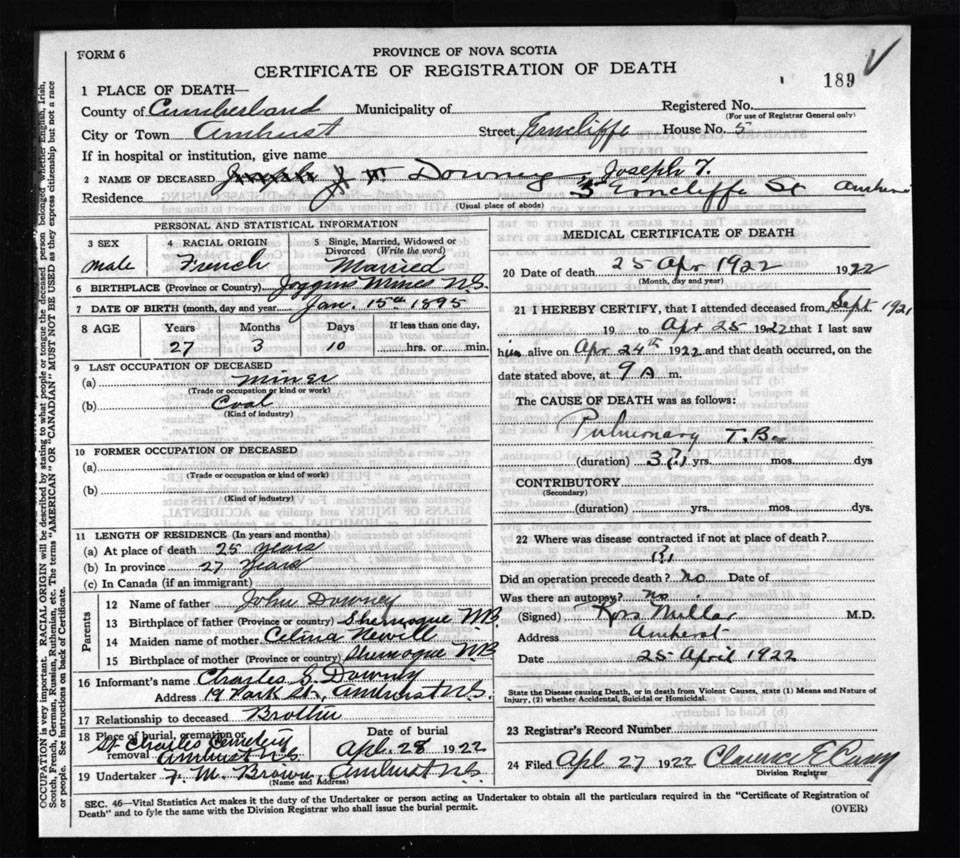 FORM 6
PROVINCE OF NOVA SCOTIA
CERTIFICATE OF REGISTRATION OF DEATH
189
1 PLACE OF DEATH—
County of Cumberland Municipality of Registered No.
(For use of Registrar General only)
City or Town Amherst Street Erncliffe House No. 5
If in hospital or institution, give name
2 NAME OF DECEASED Joseph Downey, Joseph T.
Residence Erncliffe St Amherst
(Usual place of abode)
PERSONAL AND STATISTICAL INFORMATION
3 SEX 4 RACIAL ORIGIN 5 Single, Married, Widowed or Divorced (Write the word)
male French Married
6 BIRTHPLACE (Province or Country) Joggins Mines N.S.
7 DATE OF BIRTH (month, day and year) Jan. 15th 1895
8 AGE Years Months Days If less than one day,
27 3 10 hrs. or min.
9 LAST OCCUPATION OF DECEASED
(a) miner
(Trade or occupation or kind or work)
(b) Coal
(Kind of industry)
10 FORMER OCCUPATION OF DECEASED
(a)
(Trade or occupation or kind of work)
(b)
(Kind of industry)
11 LENGTH OF RESIDENCE (In years and months)
(a) At place of death 25 years
(b) In province 27 years
(c) In Canada (if an immigrant)
Parents
12 Name of father John Downey
13 Birthplace of father (Province or country) Shemogue N.B.
14 Maiden name of mother Celina Newill
15 Birthplace of mother (Province or country) Shemogue N.B
16 Informant's name Charles S. Downey
Address 19 Park St., Amherst N.S.
17 Relationship to deceased Brother
18 Place of burial, cremation or removal St Charles Cemetery Amherst N.S. Date of burial Apl. 28 1922
19 Undertaker F. M. Brown, Amherst N.S.
(Name and Address)
MEDICAL CERTIFICATE OF DEATH
20 Date of death 25 Apr 1922 1922
(Month, day and year)
21 I HEREBY CERTIFY, that I attended deceased from Sept 1921
19 to Apr 25 1922 that I last saw
him alive on Apr 24th 1922 and that death occurred, on the
date stated above, at 9 A. m.
The CAUSE OF DEATH was as follows:
Pulmonary T.B.
(duration) yrs. mos. dys
CONTRIBUTORY
(Secondary)
(duration) yrs. mos. dys.
22 Where was disease contracted if not at place of death?
Did an operation precede death? No Date of
Was there an autopsy? No
(Signed) Ross Millar M.D.
Address Amherst
Date 25 April 1922
State the Disease causing Death, or in death from Violent Causes, state (1) Means and Nature of
Injury, (2) whether Accidental, Suicidal or Homicidal.
23 Registrar's Record Number
24 Filed Apl 27 1922 Clarence E
Division Registrar
SEC. 46—Vital Statistics Act makes it the duty of the Undertaker or person acting as Undertaker to obtain all the particulars required in the "Certificate of Registration of
Death" and to fyle the same with the Division Registrar who shall issue the burial permit.
(OVER)
OCCUPATION is very important. RACIAL ORIGIN will be described by stating to what people or tongue the deceased person belonged whether English, Irish,
Scotch, French, German, Russian, Ruthenian, etc. The terms "AMERICAN" OR "CANADIAN" MUST NOT BE USED as they express citizenship but not a race
or people. See instructions on back of Certificate.